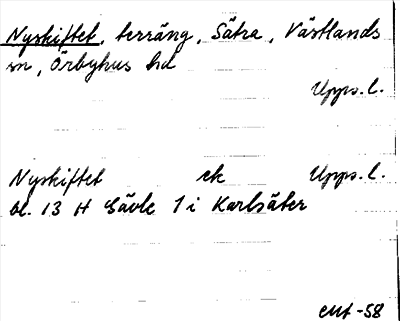 Nyskiftet, terräng, Sätra, Västlands
sn, Örbyhus hd
Upps. l.
Nyskiftet ek Upps. l.
bl. 13 H Gävle 1 i Karlsäter
-58